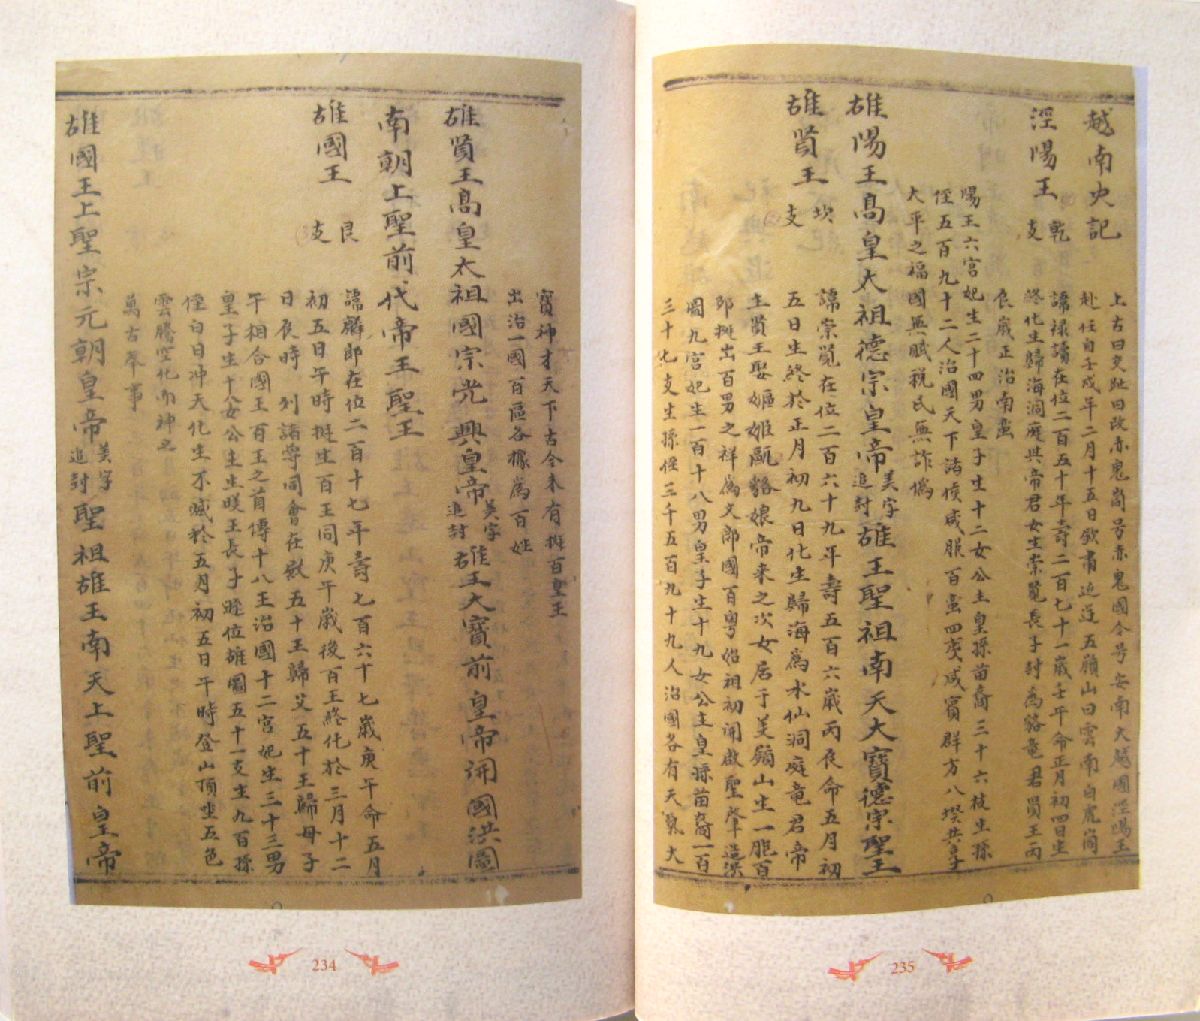 越南史記
上古曰交趾曰改赤鬼崗号赤鬼國今号安南大越國涇陽王
涇陽王 乾支
赴任自壬戌年二月十五日欽肅近迎五嶺山曰雲南白虎崗
諱祿讀在位二百五十年壽二百七十一歲壬午命正月初四日生
終化生歸海洞庭共帝君女生崇覽長子封為貉竜君員王丙
辰歲正治南蛮
陽王六宮妃生二十四男皇子生十二女公主皇孫苗裔三十六枝生孫
侄五百九十二人治國天下諸侯咸服百蛮四夷咸賓群方八埃共享
大平之福國無賦税民無詐偽
雄陽王高皇大祖德宗皇帝美字追封雄王聖祖南天大寶德宗聖王
雄賢王 坎支
諱崇覽在位二百六十九年壽五百六歲丙辰命五月初
五日生終於正月初九日化生歸海為水仙洞庭竜君帝
生賢王娶嫗姬甌貉娘帝来之次女居于美嶺山生一胞百
卵挺出百男之祥為文郎國百粤始祖初開啟聖肇造洪
圖九宮妃生一百十八男皇子生十九女公主皇孫苗裔一百
三十七支生孫侄三千五百九十九人治國各有天氣大
寶神才天下古今未有挺百皇王
出治一國百區各據為百姓
雄賢王高皇太祖國宗光興皇帝美字追封雄王大寶前皇帝開國洪圖
南朝上聖前代帝王聖王
雄國王 艮支
諱麟郎在位二百十七年壽七百六十七歲庚午命五月
初五日午時挺生百王同庚午歲後百王終化於三月十二
日辰時列諸寧同會在嶽五十王歸父五十王歸母子
午相合國王百王之首傳十八王治國十二宮妃生三十三男
皇子生十八女公生生暎王長子㛪位雄圖五十一支生九百孫
侄白日冲天化生不滅於五月初五日午時登山頂坐五色
雲騰空化而神之
萬古奉事
雄國王上聖宗元朝皇帝美字追封聖祖雄王南天上聖前皇帝
234
235